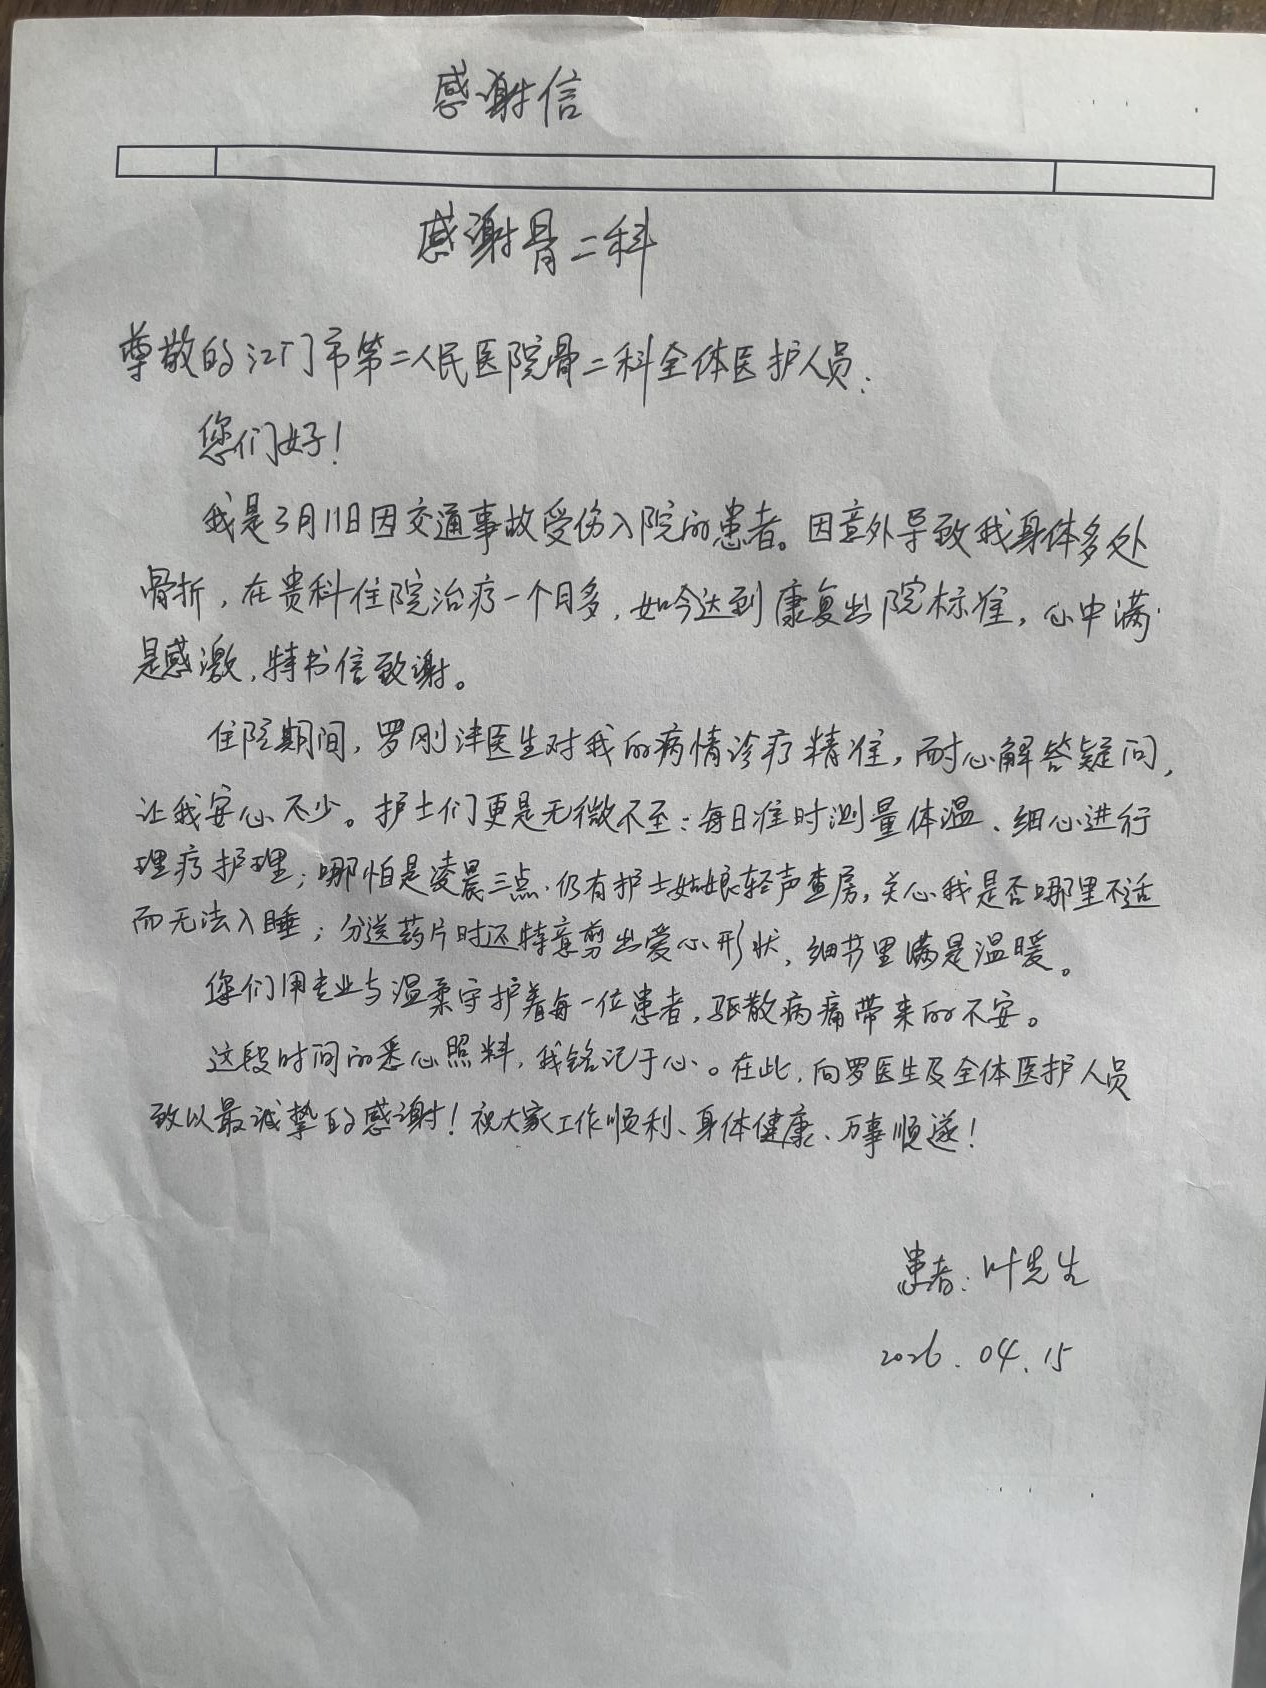 感谢信
感谢骨二科
尊敬的江门市第二人民医院骨二科全体医护人员：
您们好！
我是3月11日因交通事故受伤入院的患者。因意外导致我身体多处
骨折，在贵科住院治疗一个月多，如今达到康复出院标准，心中满
是感激，特书信致谢。
住院期间，罗刚沣医生对我的病情诊疗精准，耐心解答疑问，
让我安心不少。护士们更是无微不至：每日准时测量体温、细心进行
理疗护理；哪怕是凌晨三点，仍有护士姑娘轻声查房，关心我是否哪里不适
而无法入睡；分送药片时还特意剪出爱心形状，细节里满是温暖。
您们用专业与温柔守护着每一位患者，驱散病痛带来的不安。
这段时间的悉心照料，我铭记于心。在此，向罗医生及全体医护人员
致以最诚挚的感谢！祝大家工作顺利、身体健康、万事顺遂！
患者：叶先生
2026.04.15